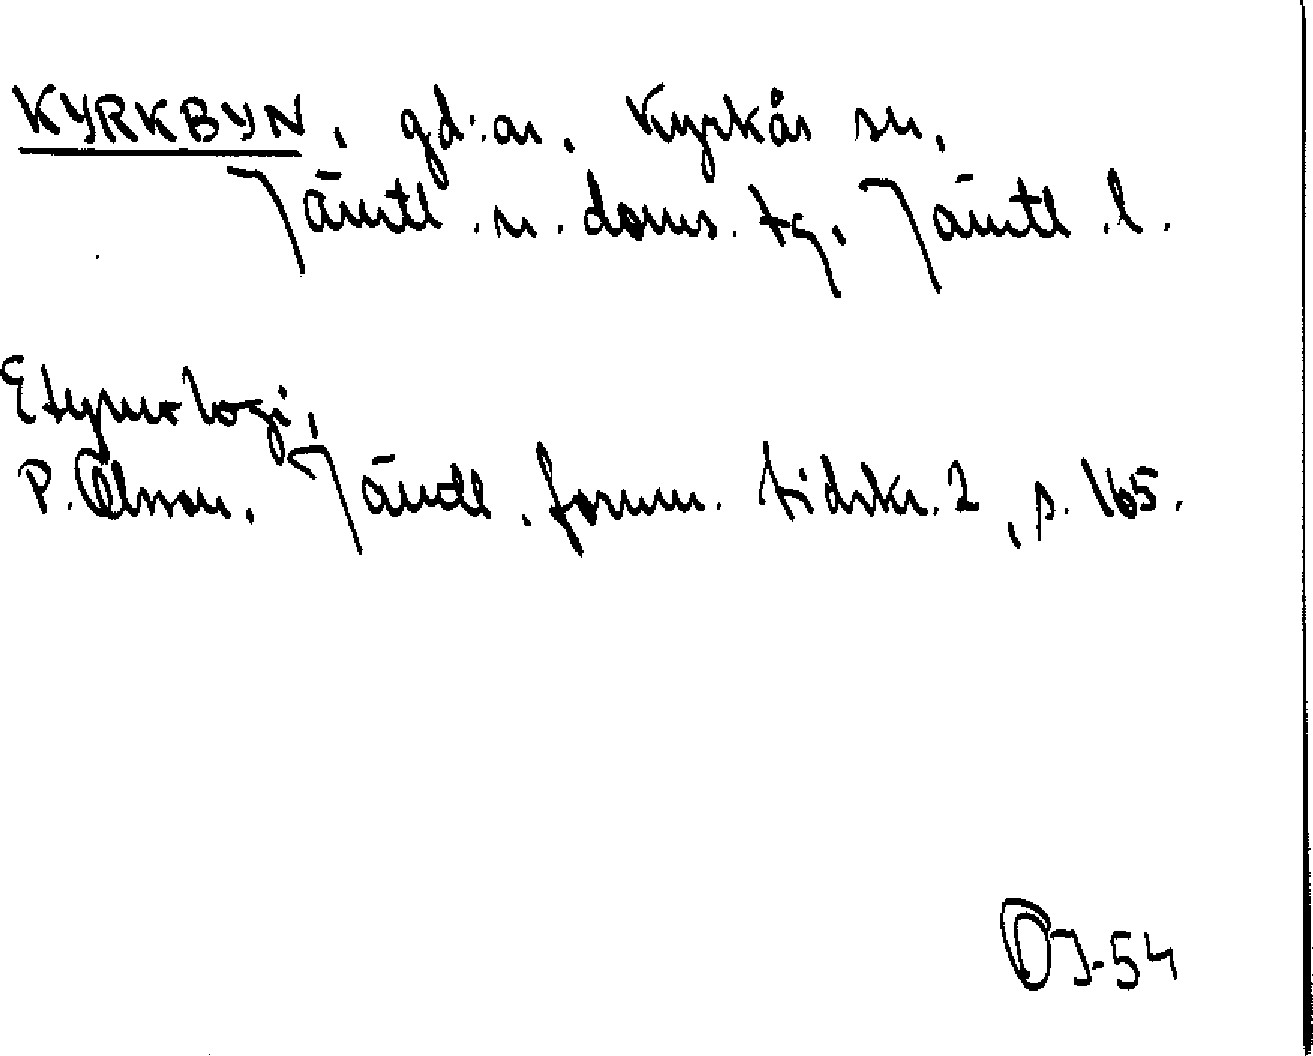 KYRKBYN, gd:ar, Kyrkås sn,
Jämtl. n. doms. tg, Jämtl. l.
Etymologi,
P. Olsson, Jämtl. fornm. tidskr. 2, s. 165.
OJ-54